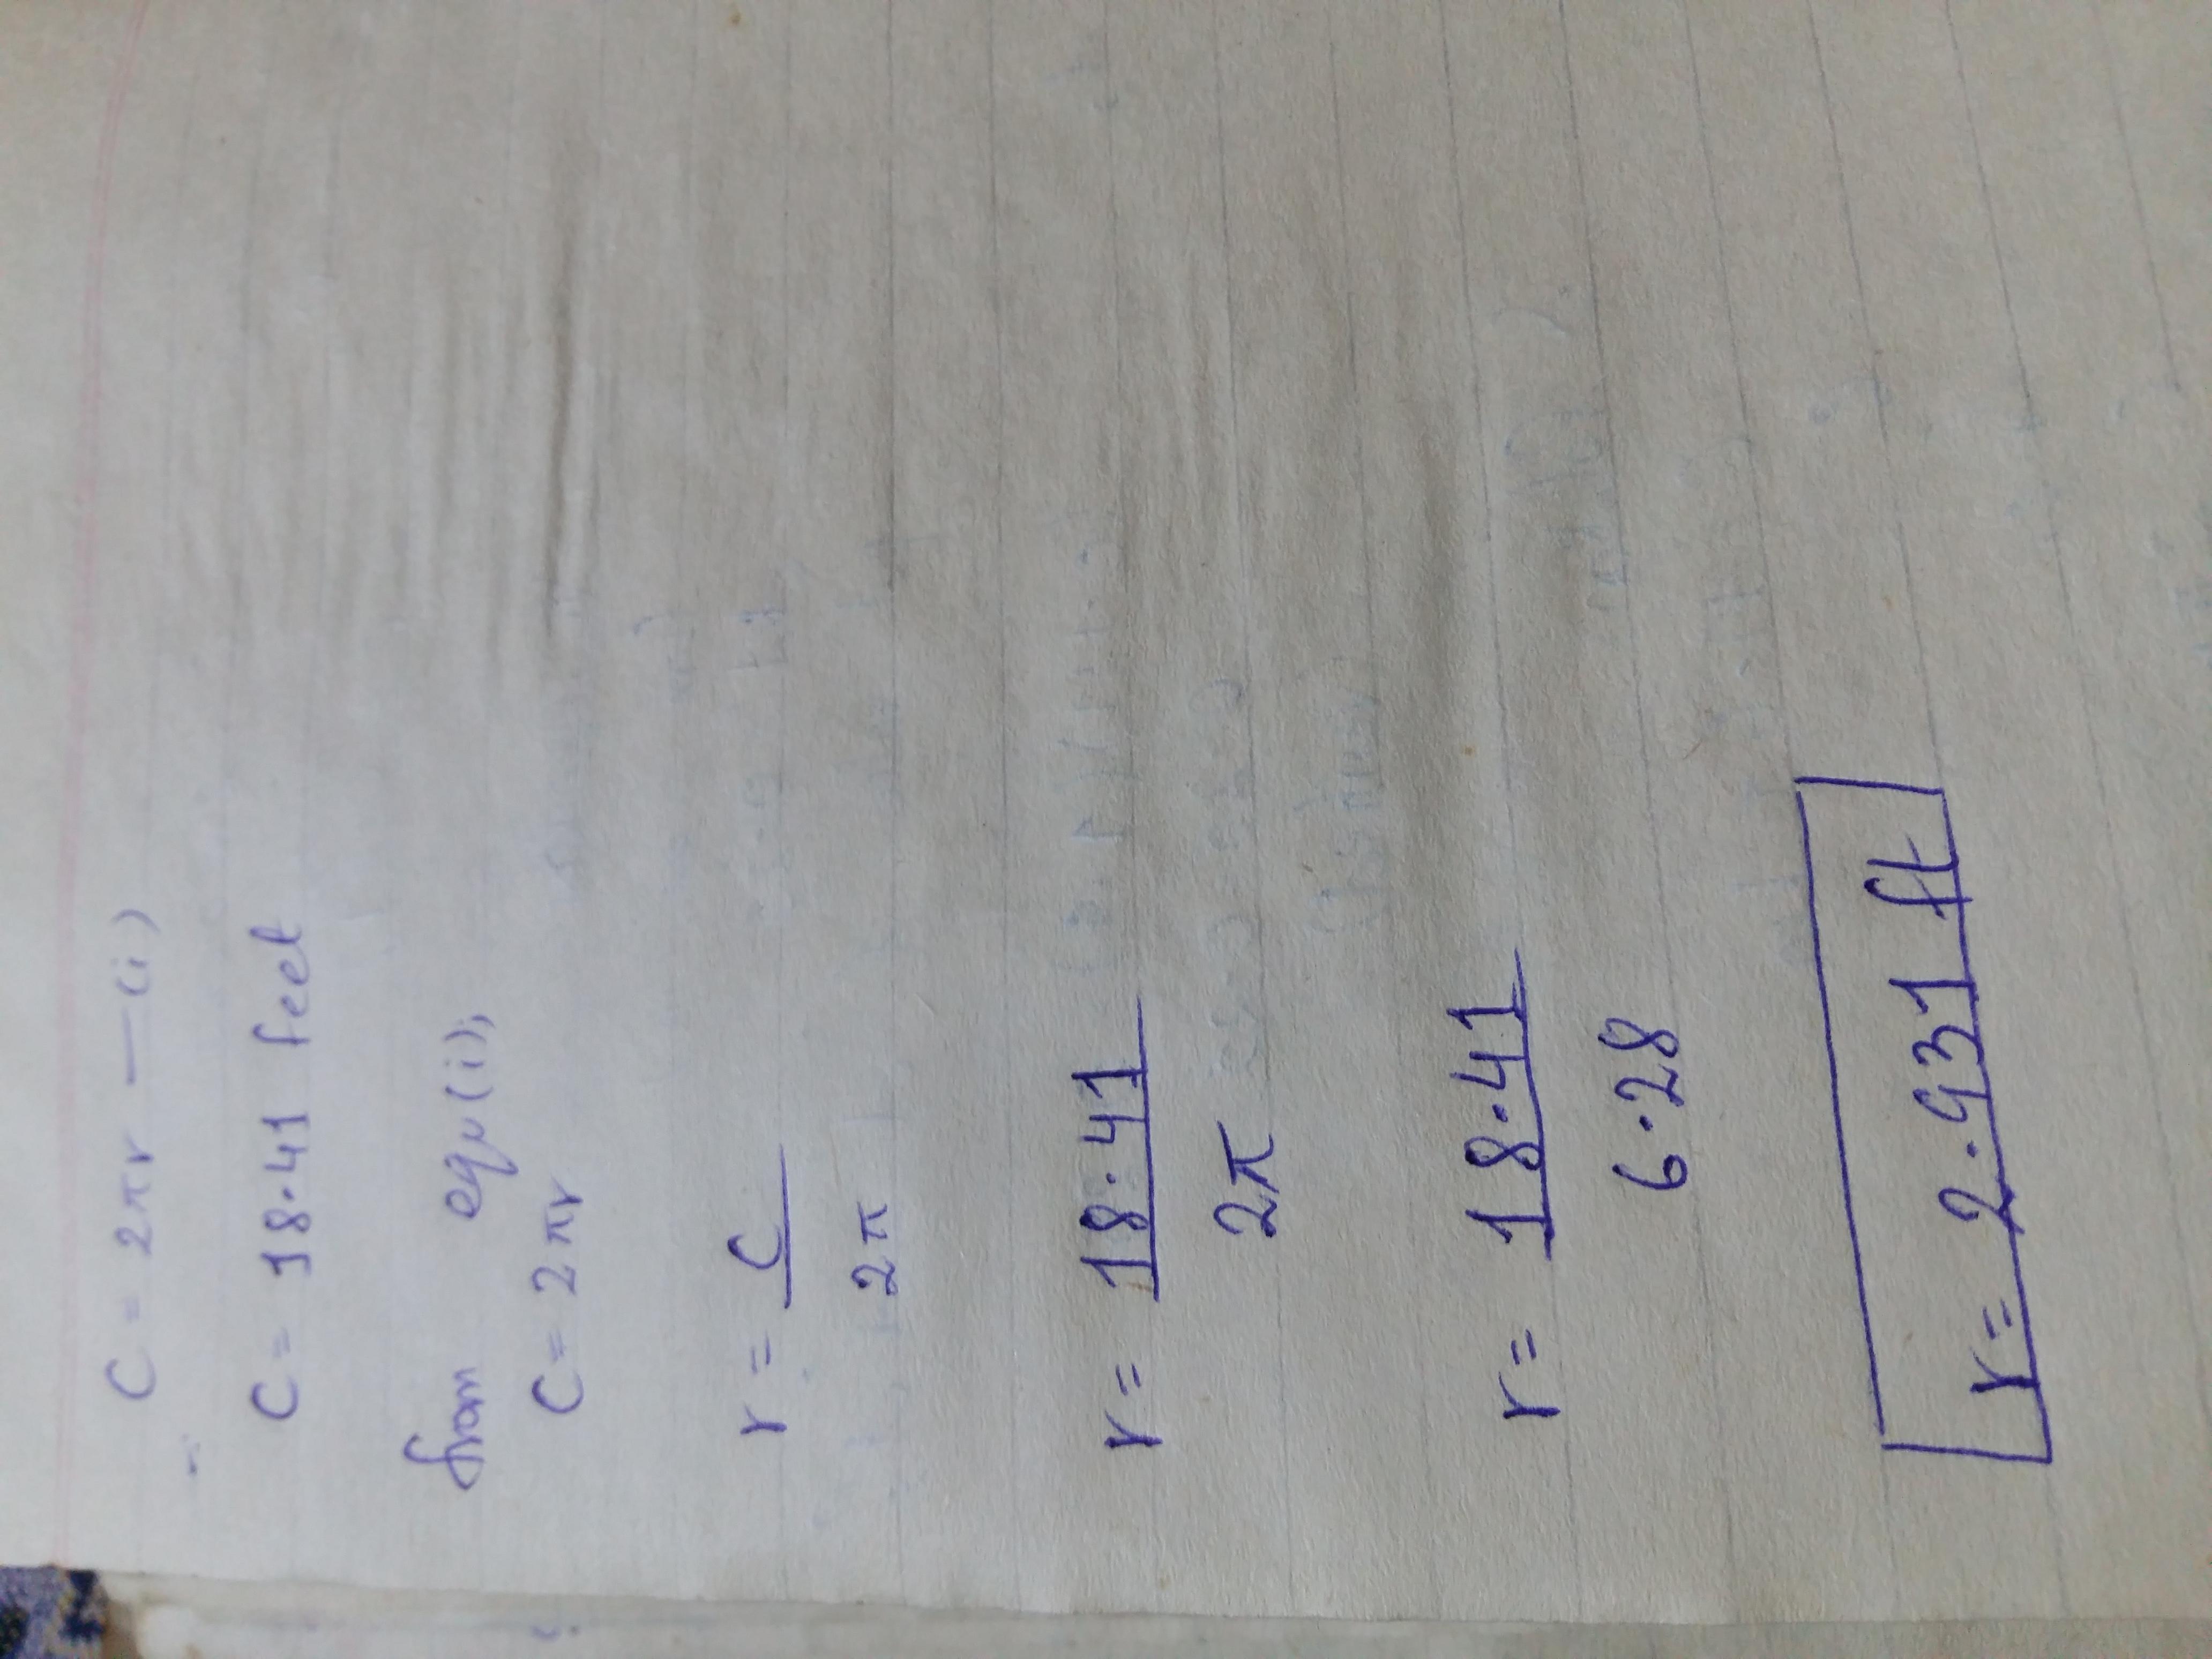 C = 2πr — (i)
C = 18.41 feet
from equ (i),
C = 2πr
r = C
2π
r = 18.41
2π
r = 18.41
6.28
r = 2.931 ft